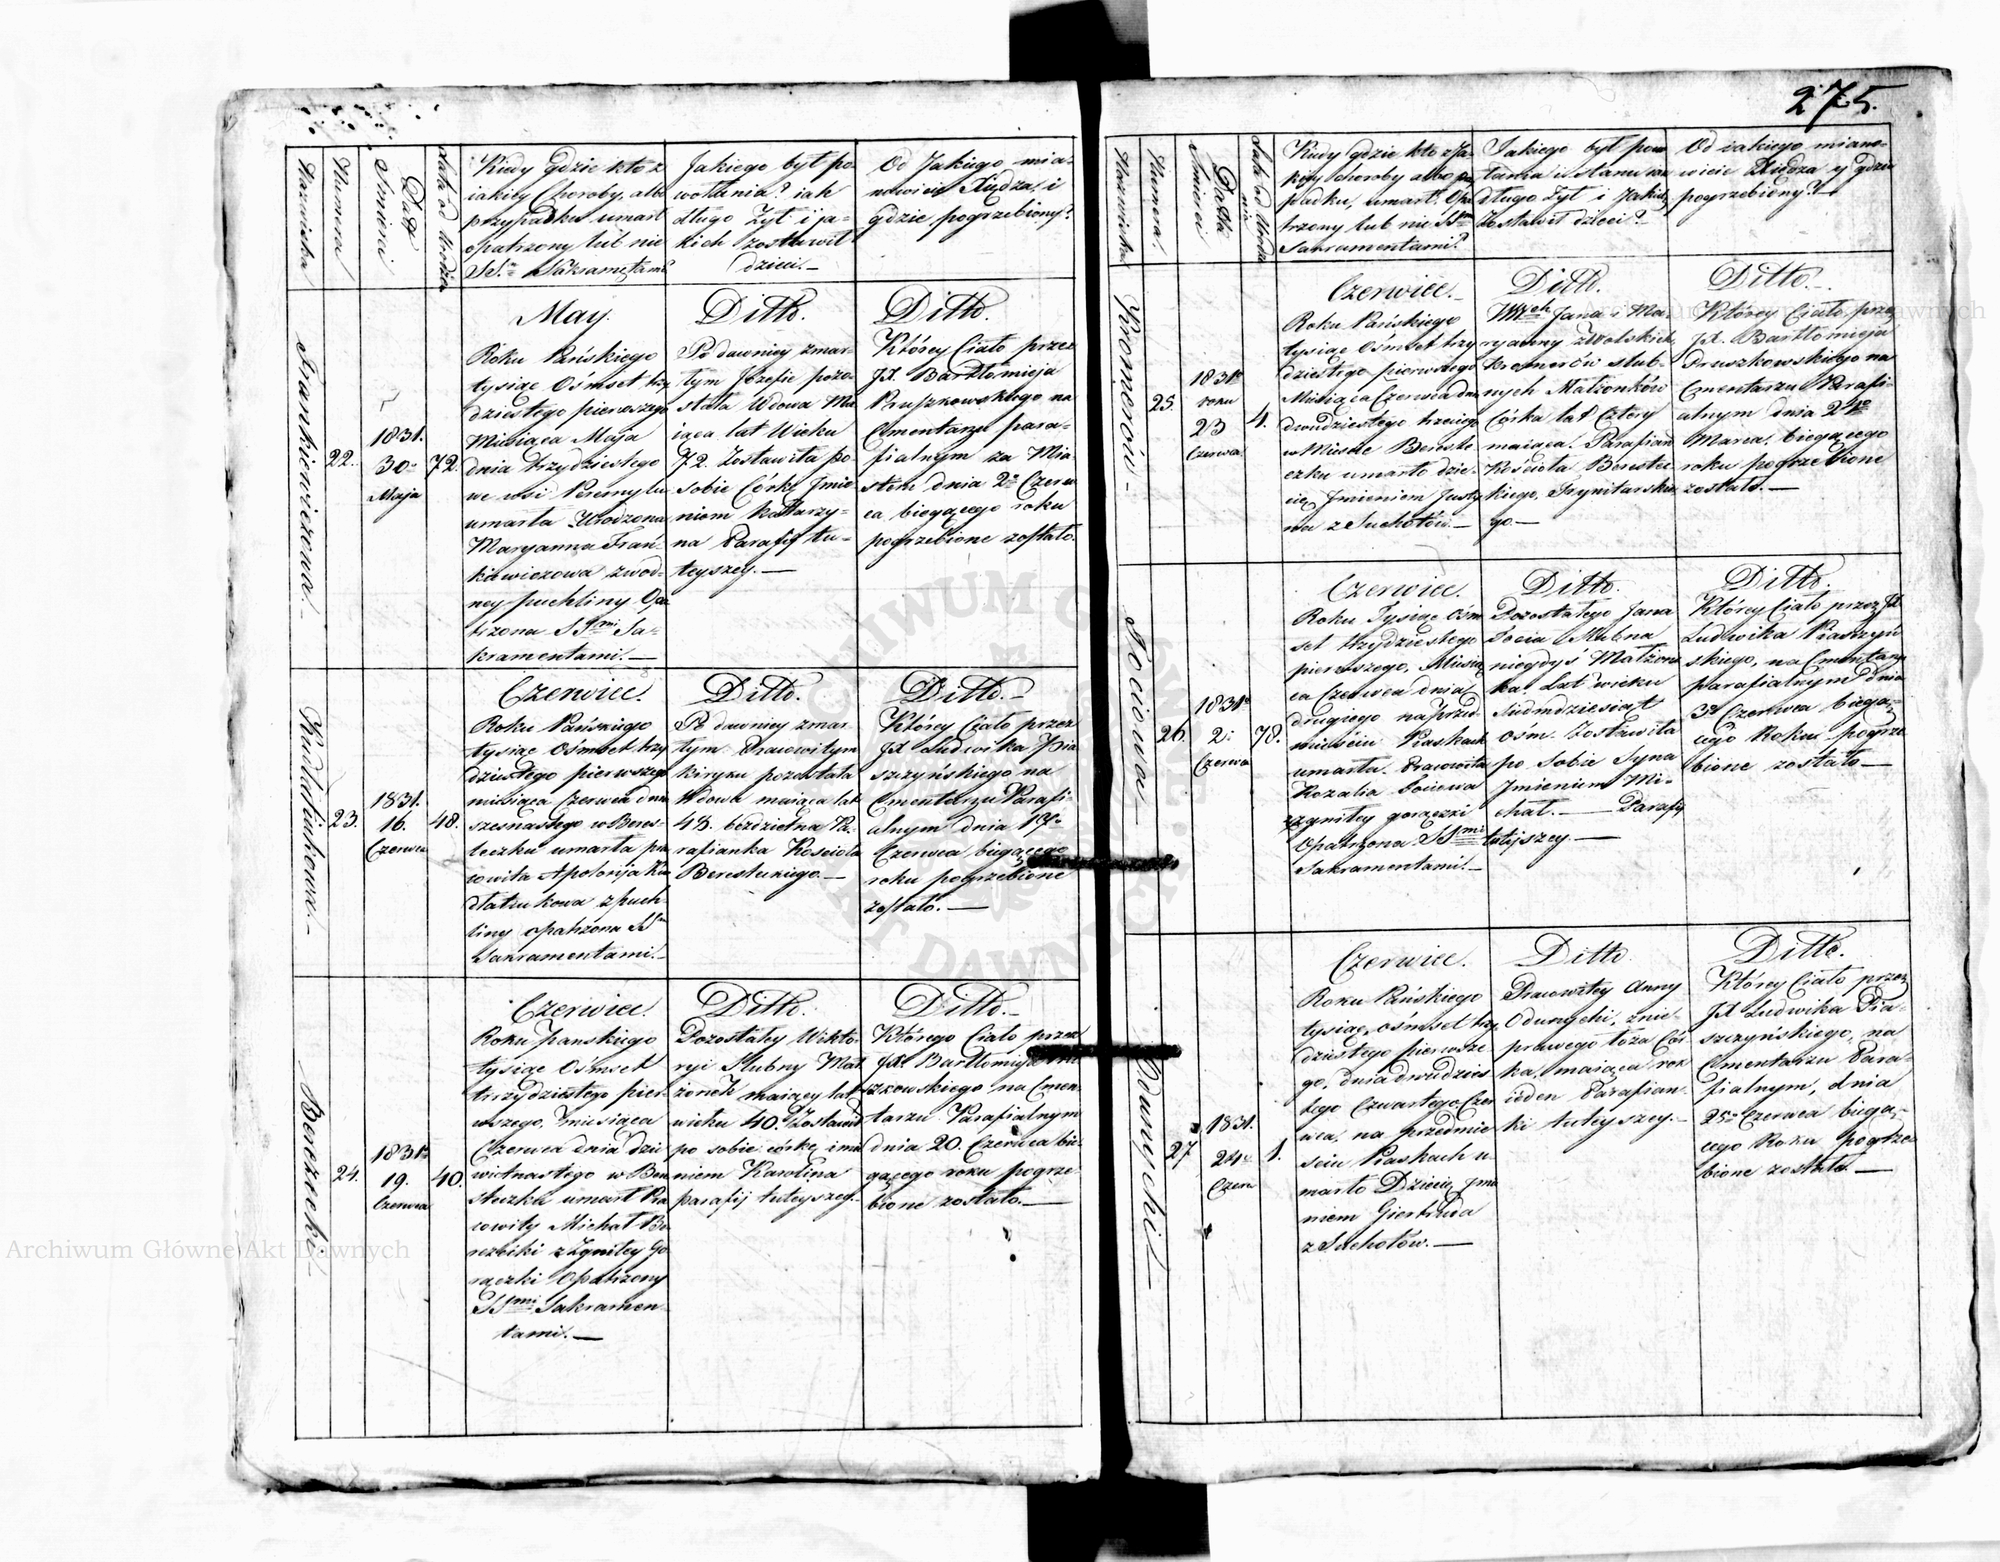 275.
Nazwiska
Numera
Data
Smierci
Lata od Urodzen
Kiedy gdzie kto z
iakiey Choroby, albo
przypadku umarł
opatrzony lub nie
SS. Sakramętami?
Jakiego był po=
wołania? iak
długo Żył i ja=
kich zostawił
dzieci.—
Od Jakiego mia=
nowicie Xiędza, i
gdzie pogrzebiony?
Frankiewiczowa.
22.
1831.
30
Maja
72.
May.
Roku Pańskiego
tysiąc Ośmset trzy
dziestego pierwszego
Miesiąca Maja
dnia trzydziestego
we wsi Peremylu
umarła Urodzona
Maryanna Frań=
kiewiczowa z wod=
ney puchliny Opa
trzona SSmi Sa=
kramentami.—
Ditto.
Po dawniey zmar=
łym Józefie pozo=
stała Wdowa Ma
iąca lat Wieku
72. Zostawiła po=
sobie Córkę Imie=
niem Katarzy=
na Parafij tu=
teyszey.—
Ditto.
Którey Ciało przez
JX. Bartłomieja
Pruszkowskiego na
Cmentarzu para=
fialnym za Mia
stem dnia 2 Czerw
ca, biegącego roku
pogrzebione zostało.
23.
1831.
16.
Czerwca
48.
Czerwiec.
Roku Pańskiego
tysiąc Ośmset trzy
dziestego pierwszego
miesiąca Czerwca dnia
szesnastego w Beres=
teczku umarła pra
cowita Apolonija Ku
z puch
liny opatrzona SS
Sakramentami.—
Ditto.
Po dawniey zmar
łym Pracowitym
Kiryku pozostała
Wdowa maiąca lat
48. bezdzietna Pa=
rafianka Kościoła
Beresteckiego.—
Ditto.—
Którey Ciało przez
JX Ludwika Pia
szczyńskiego na
Cmentarzu Parafi=
alnym dnia 17
Czerwca biegącego
roku pogrzebione
zostało.—
Berezecki.
24.
1831
19.
Czerwca
40.
Czerwiec.
Roku Panskiego
tysiąc Ośmset
trzydziestego pier=
wszego, miesiąca
Czerwca dnia dzie
więtnastego w Bere
steczku umarł Pra
cowity Michał Be
rezecki z Zgniłey Go
rączki Opatrzony
SSmi Sakramen
tami.—
Ditto.
Pozostały Wikto=
ryi Slubny Mał
żonek maiący lat
wieku 40. Zostawił
po sobie córkę imie
niem Karolina
parafij tuteyszey.—
Ditto.—
Którego Ciało przez
JX. Bartłomieja Pru
szkowskiego na Cmen=
tarzu Parafialnym
dnia 20. Czerwca bie=
gącego roku pogrze=
bione zostało.—
Nazwiska
Numera.
Datta
Smierci
Lata od Urodze
nia
Kiedy gdzie kto z Ja
kiey choroby albo przy
padku, umarł. Opa
trzony lub nie SSmi
Sakramentami?
Jakiego był powo
łania i Stanu iak
długo Żył i Jakich
Zostawił dzieci?—
Od iakiego miano=
wicie Xiędza y gdzie
pogrzebiony?—
Kromerów—
25.
1831
roku
23
Czerwca
4.
Czerwiec.—
Roku Pańskiego
tysiąc Ośmset trzy
dziestego pierwszego
Miesiąca Czerwca dnia
dwudziestego trzeciego
w Mieście Bereste
czku umarło dzie=
cię Imieniem Justy
na z Suchotów.—
Ditto.
Jana i Ma=
ryanny z Wolskich
Kromerów slub=
nych Małżonków
Córka lat Cztery
maiąca. Parafian
Kościoła Berestec
kiego, Trynitarskie
go.—
Ditto.—
Którey Ciało przez
JX. Bartłomieja
Pruszkowskiego na
Cmentarzu Parafi=
alnym dnia 24
Marca, biegącego
roku pogrzebione
zostało.—
Sociowa—
26.
1831
2.
Czerwca
78.
Czerwiec.
Roku Tysiąc Ośm
set trzydziestego
pierwszego, Miesią
ca Czerwca dnia
drugiego na przed=
mieściu Piaskach
umarła. Pracowita
Rozalia Sociowa
z zgniłey gorączki
Opatrzona. SSmi
Sakramentami.—
Ditto.
Pozostałego Jana
Socia Slubna
niegdyś Małżon
ka Lat wieku
Siedmdziesiąt
Ośm. Zostawiła
po Sobie Syna
Imieniem Mi=
chał.— Parafij
tutejszey.—
Ditto.
Którey Ciało przez JX.
Ludwika Piaszczyń
skiego, na Cmentarzu
parafialnym dnia
3 Czerwca biega=
iego Roku pogrze
bione zostało—
Odunichi—
27
1831.
24
Czerw
1.
Czerwiec.
Roku Pańskiego
tysiąc, ośmset trzy
dziestego pierwsze
go, dnia dwudzies
tego Czwartego Czer
wca, na przedmie
ściu Piaskach u=
marło Dziecię Imie
niem Giertruda
z Suchotów.—
Ditto.
Pracowitey Anny
Odunichi, z nie=
prawego łoża Cór
ka, maiąca rok
ieden Parafian=
ki tuteyszey.—
Ditto.
Którey Ciało przez
JX Ludwika Pia=
szczyńskiego, na
Cmentarzu Para=
fialnym, dnia
25 Czerwca biega=
iego Roku pogrze
bione zostało—
Archiwum Główne Akt Dawnych